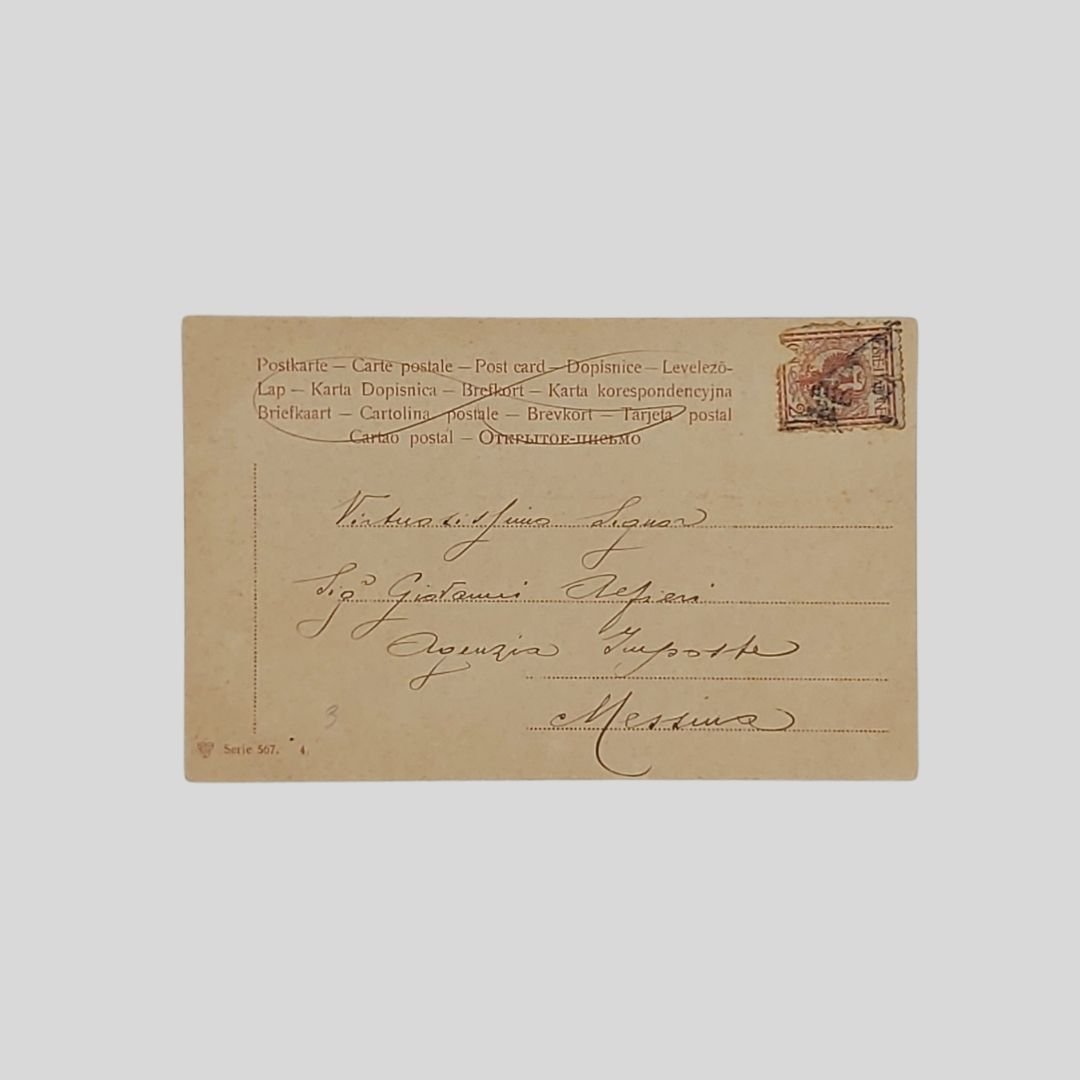 Postkarte – Carte postale – Post card – Dopisnice – Levelező-
Lap – Karta Dopisnica – Brefkort – Karta korespondencyjna
Briefkaart – Cartolina postale – Brevkort – Tarjeta postal
Cartao postal – Открытое-письмо
Virtuosissimo Signor
Sigr Giovanni Alfieri
Agenzia Imposte
Messina
3
Serie 567. 4.